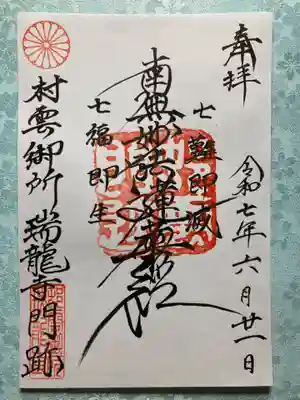 奉拝
令和七年六月廿一日
七難即滅
南無妙法蓮華経
七福即生
村雲御所 瑞龍寺門跡